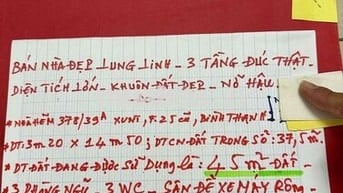 BÁN NHÀ ĐẸP LUNG LINH - 3 TẦNG ĐÚC THẬT -
DIỆN TÍCH LỚN - KHUÔN ĐẤT ĐẸP - NỞ HẬU
* NHÀ HẺM 378/39A XVNT, F:25 CŨ, BÌNH THẠNH
* DT: 3m20 x 14m50; DTCN ĐẤT TRONG SỔ: 37,5m².
- DT ĐẤT ĐANG ĐƯỢC SỬ DỤNG LÀ: 45m² ĐẤT -
- 3 PHÒNG NGỦ - 3 WC - SÂN ĐỂ XE MÁY RỘNG -